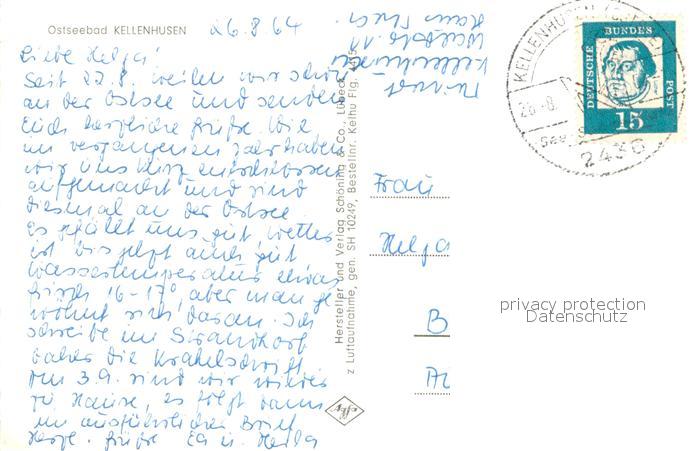 Ostseebad KELLENHUSEN
26.8.64
Liebe Helga!
Seit 22.8. weilen wir schon
an der Ostsee und senden
Euch herzliche Grüße. Wie
im vergangenen Jahr haben
wir uns kurz entschlossen
aufgemacht und sind
diesmal an der Ostsee
Es gefällt uns gut Wetter
ist bis jetzt auch gut
Wassertemperatur etwas
frisch 16-17°, aber man ge
wöhnt sich daran. Ich
schreibe im Strandkorb
daher die Krakelschrift
Am 3.9. sind wir wieder
zu Hause, es folgt dann
ein ausführlicher Brief
Herzl. Grüße
Kellenhusen
Waldstr. 11
Haus
Hersteller und Verlag Schöning & Co., Lübeck
z Luftaufnahme, gen. SH 10249, Bestellnr. Kelhu Flg.
Frau
Helga
B
KELLENHUSEN
26.-8.
2436
DEUTSCHE BUNDES POST
15
privacy protection
Datenschutz